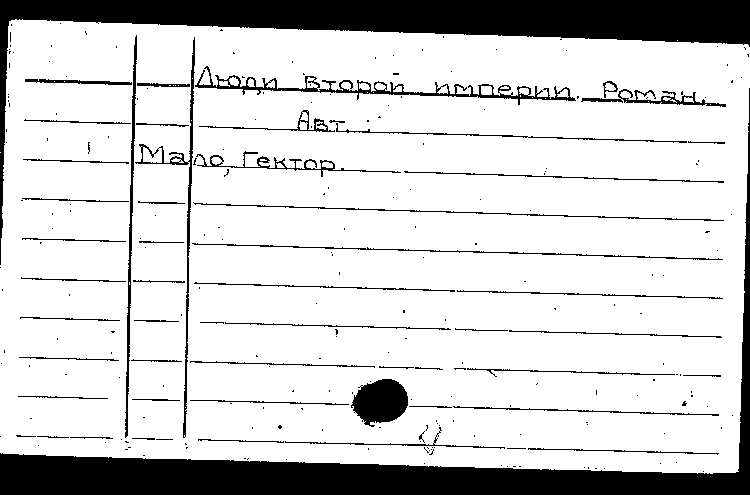 Люди второй империи. Роман.
Авт.:
Мало, Гектор.